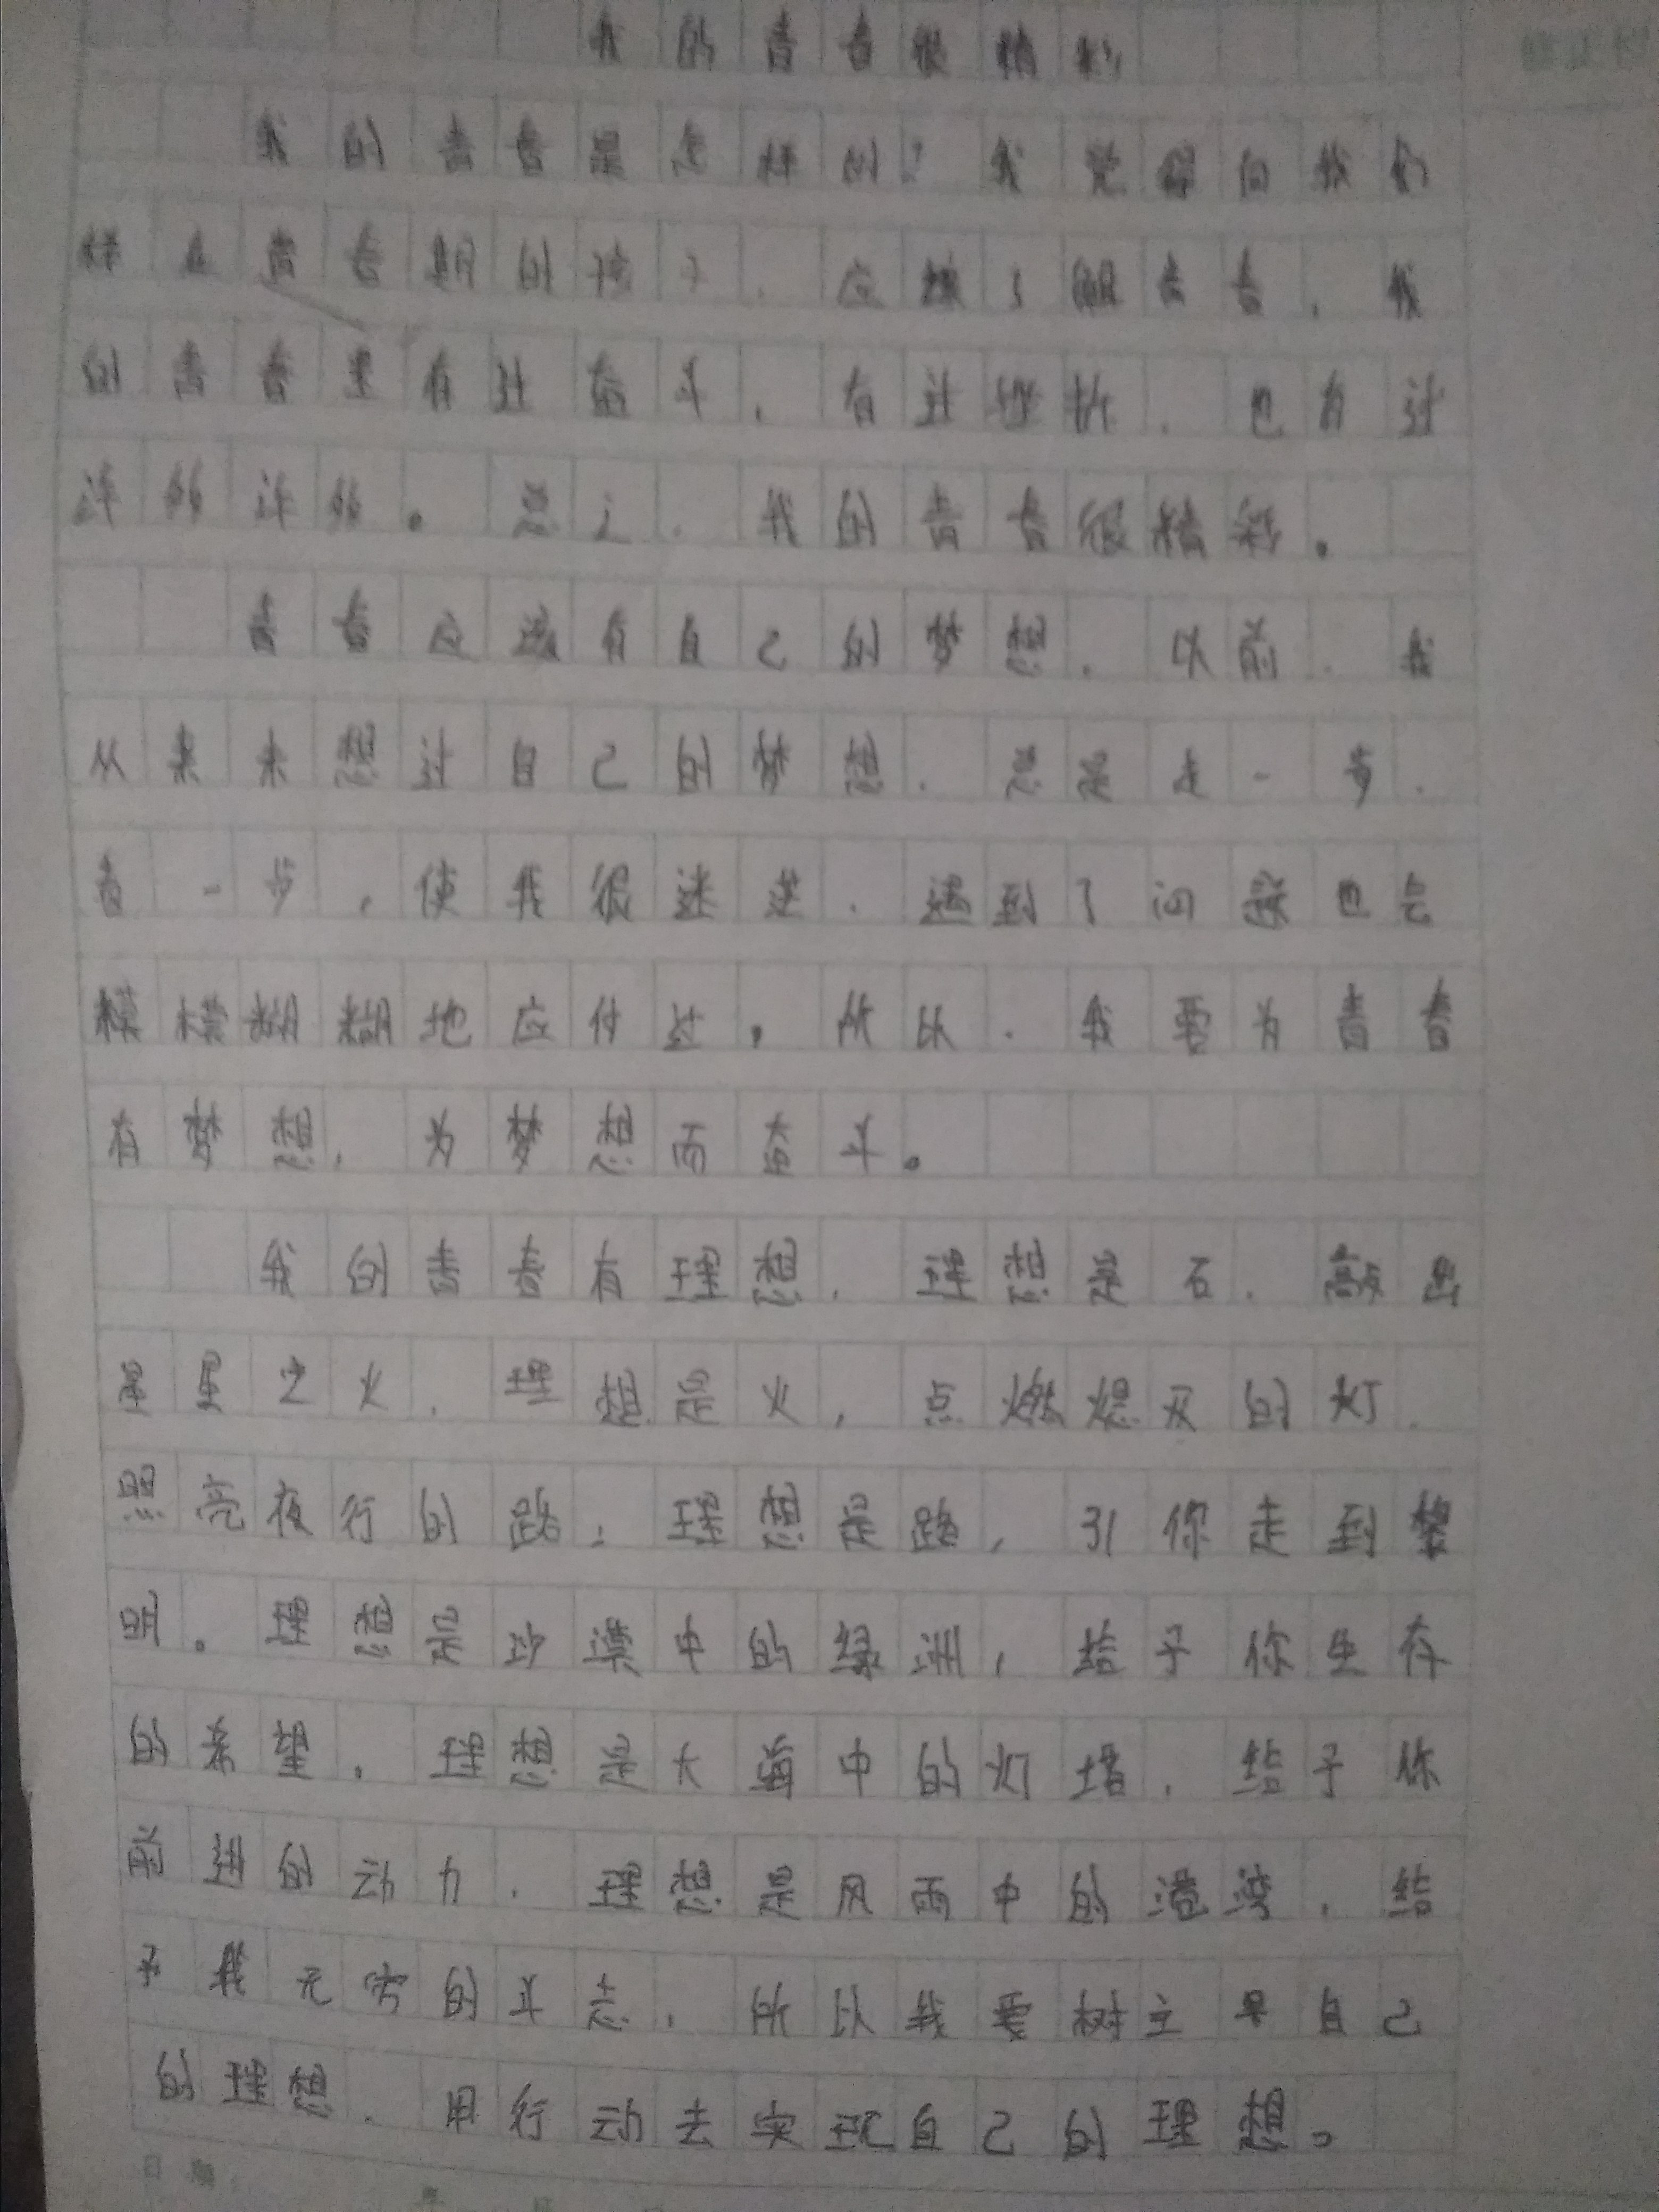 我的青春很精彩
我的青春是怎样的？我觉得向我们
样在青春期的孩子，应该了解青春，我
的青春里有过奋斗，有过挫折，也有过
许许。总之，我的青春很精彩。
青春应该有自己的梦想，以前，我
从来未想过自己的梦想，总是走一步，
看一步，使我很迷茫，遇到了问题也会
模模糊糊地应付过，所以，我要为青春
有梦想，为梦想而奋斗。
我的青春有理想，理想是石，敲出
星星之火，理想是火，点燃熄灭的灯，
照亮夜行的路，理想是路，引你走到黎
明。理想是沙漠中的绿洲，给予你生存
的希望，理想是大海中的灯塔，给予你
前进的动力，理想是风雨中的港湾，给
予我无穷的斗志，所以我要树立早自己
的理想，用行动去实现自己的理想。
日期：